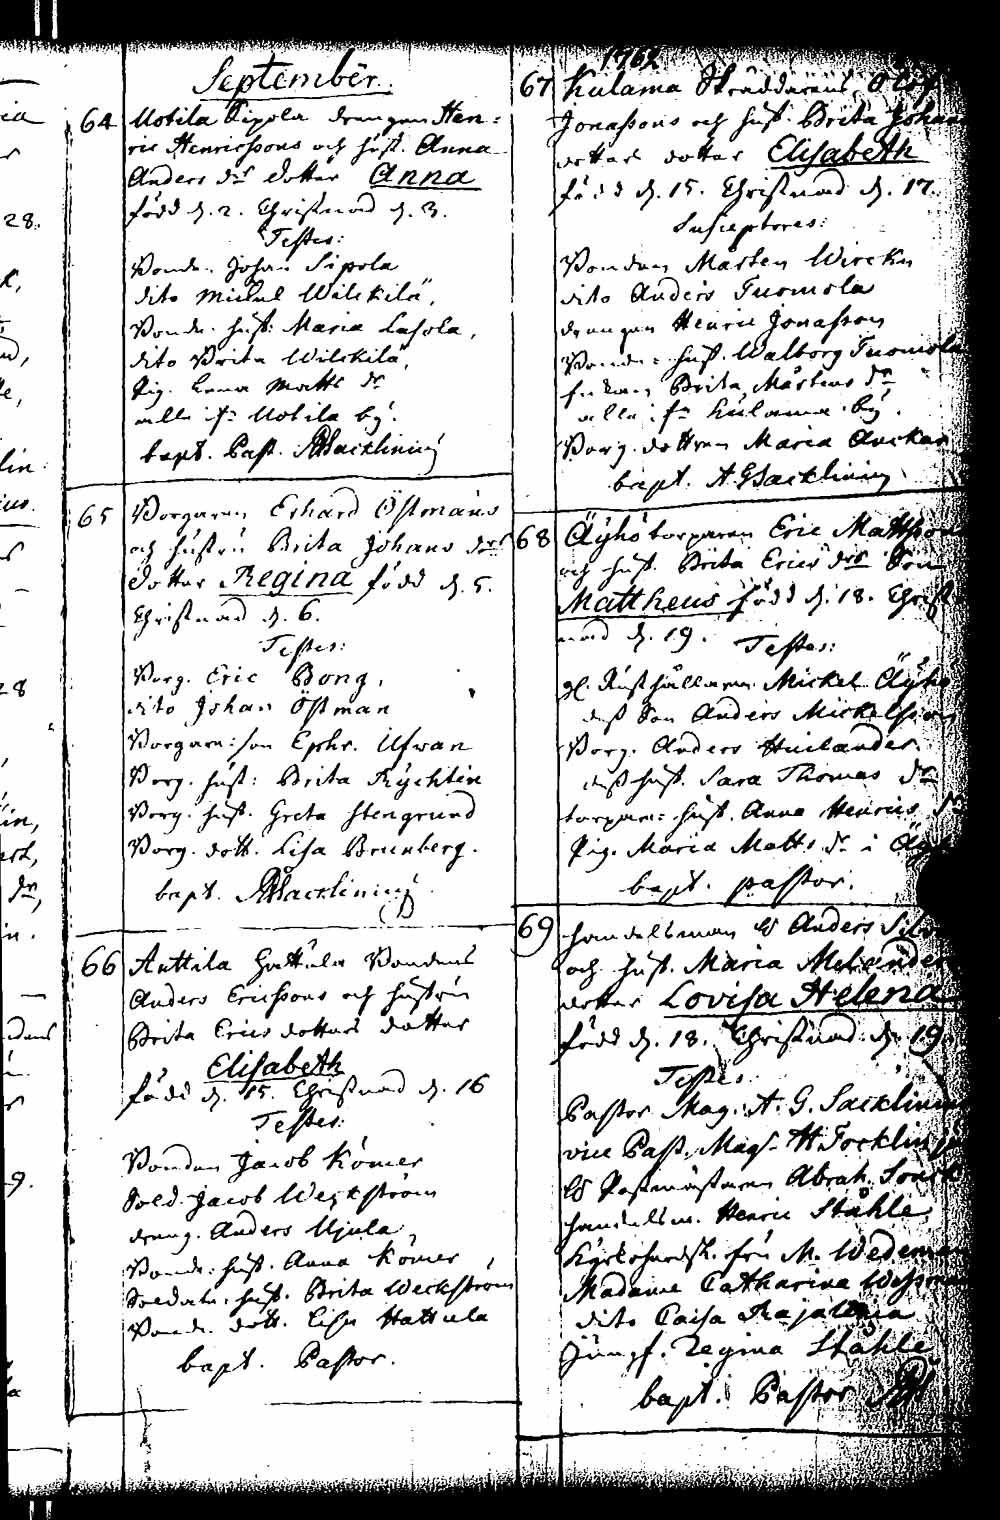 September
64 Uotila Sipola drengen Hen=
ric Henricssons och hust. Anna
Anders dr dotter Anna
född d. 2. Christnad d. 3.
Testes:
Bonden Johan Sipola
dito Michel Wilckilä,
Bonde. hust: Maria Lasola,
dito Brita Wilckilä,
Pig. Lena Matts dr
alle fr. Uotila by.
bapt. Past. AGSacklinius
65 Borgaren Erhard Östmans
och hustru Brita Johans drs
dotter Regina född d. 5.
Christnad d. 6.
Testes:
Borg. Eric Bong,
dito Johan Östman
Borgare: son Ephr. Ufwan
Borg. hust: Brita Rychtin
Borg. hust. Greta Stengrund
Borg. dott. Lisa Brunberg.
bapt. AGSacklinius
66 Anttila Hattula Bondens
Anders Ericssons och hustrus
Brita Erics dotters dotter
Elisabeth
född d. 15. Christnad d. 16
Testes:
Bonden Jacob Kömer
Sold. Jacob Weckström
dreng. Anders Ujula
Bonde: hust. Anna Kömer
Soldate: hust. Brita Weckström
Bonde. dott. Lisa Hattula
bapt. Pastor.
1762
67 Kulama Skräddarens Olof
Jonassons och hust. Brita Johans
dotters dotter Elisabeth
född d. 15. Christnad d. 17.
Susceptores:
Bonden Mårten Wircku
dito Anders Tuomola
drengen Henric Jonasson
Bonde: hust. Walborg Tuomola
Brita Mårtens dr
alle fr Kulama by.
Borg. dottren Maria
bapt. AGSacklinius
68 Äyhö torparen Eric Mattssons
och hust. Brita Erics drs Son
Mattheus född d. 18. Christ-
nad d. 19. Testes:
gl. Rusthållaren Mickel Äyhö
dess Son Anders Mickelsson
Borg. Anders Huilander.
dess hust. Sara Thomas dr
torpare: hust. Anna Henrics dr
Pig. Maria Matts dr i Äyhö
bapt. pastor.
69 Handelsman H Anders
och hust. Maria Melander
dotter Lovisa Helena
född d. 18. Christnad d. 19.
Testes
Pastor Mag. A. G. Sacklinius
vice Past. Mag. H.
H Postmästaren Abrah.
handelsm. Henric Ståhle,
fru M. Wedeman
Madame Catharina
dito Caisa Rajalenia
Jungf. Regina Ståhle
bapt. Pastor